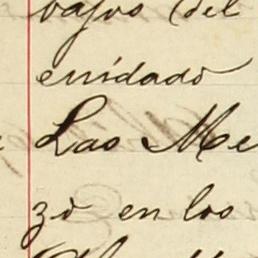 bajos (del
enidado
Las Me
zo en los